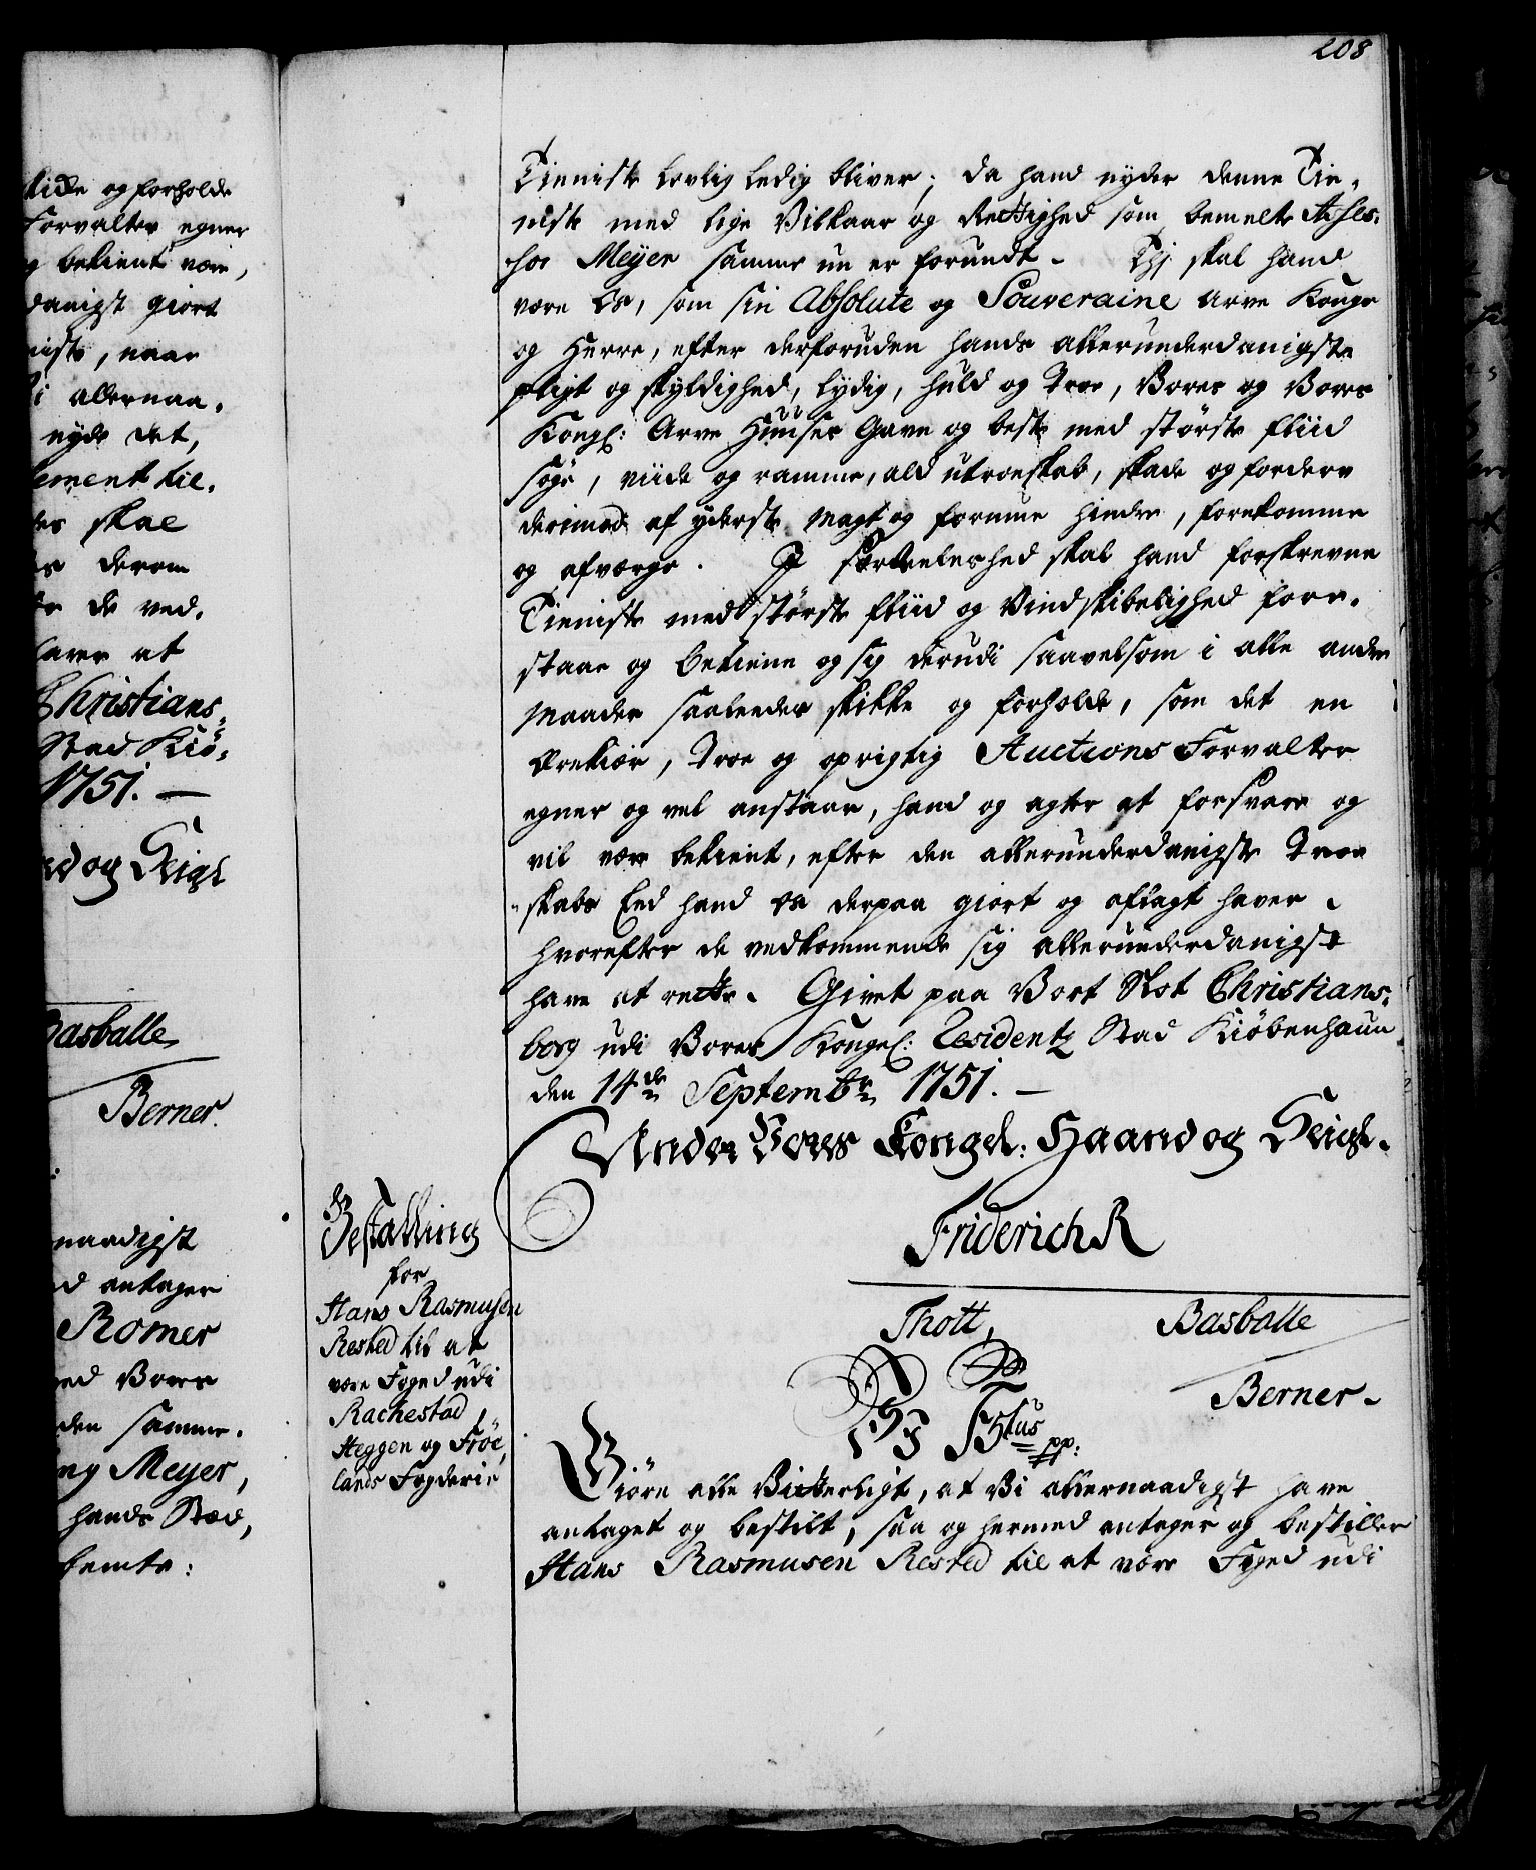 208
kicke og forholde
Forvalter egner
og bekient være,
danigst giort
niste, naar
Vi allernaa-
nyde det,
lement til-
skal
derom
de ved-
haver at
Christians-
Stad Kiö-
1751. —
nd og Seigl
Basballe
Berner.
naadigst
nd antager
Romer
ved Vores
den samme-
ng Meyer,
hands Stæd,
bemte:
Tieniste lovlig ledig bliver; da hand nyder denne Tie-
niste med lige Vilkaar og Rettighed som bemelte Asses-
sor Meyer samme nu er forundt. Thj skal hand
være Os, som sin Absolute og Souveraine Arve Konge
og Herre, efter derforuden hands allerunderdanigste
pligt og skyldighed, lydig, huld og Troe, Vores og Vores
Kongl: Arve Huuses Gavn og beste med største fliid
søge, viide og ramme, ald utroeskab, skade og forderv
derimod af yderste Magt og formue hindre, forekomme
og afverge. I særdeleshed skal hand forskrevne
Tieniste med største fliid og Vindskibelighed fore-
staae og betiene og sig derudi saavelsom i alle andre
Maader saaledes skikke og forholde, som det en
Ærekiær, Troe og oprigtig Auctions Forvalter
egner og vel anstaar, hand og agter at forsvare og
vil være bekient, efter den allerunderdanigste Troe
skabs Eed hand Os derpaa giort og aflagt haver.
hvorefter de vedkommende sig allerunderdanigst
have at rette. Givet paa Vort Slot Christians-
borg udi Vores Kongel: Residentz Stad Kiöbenhaun
den 14de Septembr 1751. —
Under Vores Kongel: Haand og Seigl.
Friderich R
Thott, Basballe
Berner.
Bestalling
for
Hans Rasmusen
Rested til at
være Foged udi
Rachestad,
Heggen og Fröe
lands Fogderie
Vj F 5tus pp:
Giöre alle Vitterligt, at Vi allernaadigst have
antaget og bestilt, saa og hermed antager og bestiller
Hans Rasmusen Rested til at være Foged udi